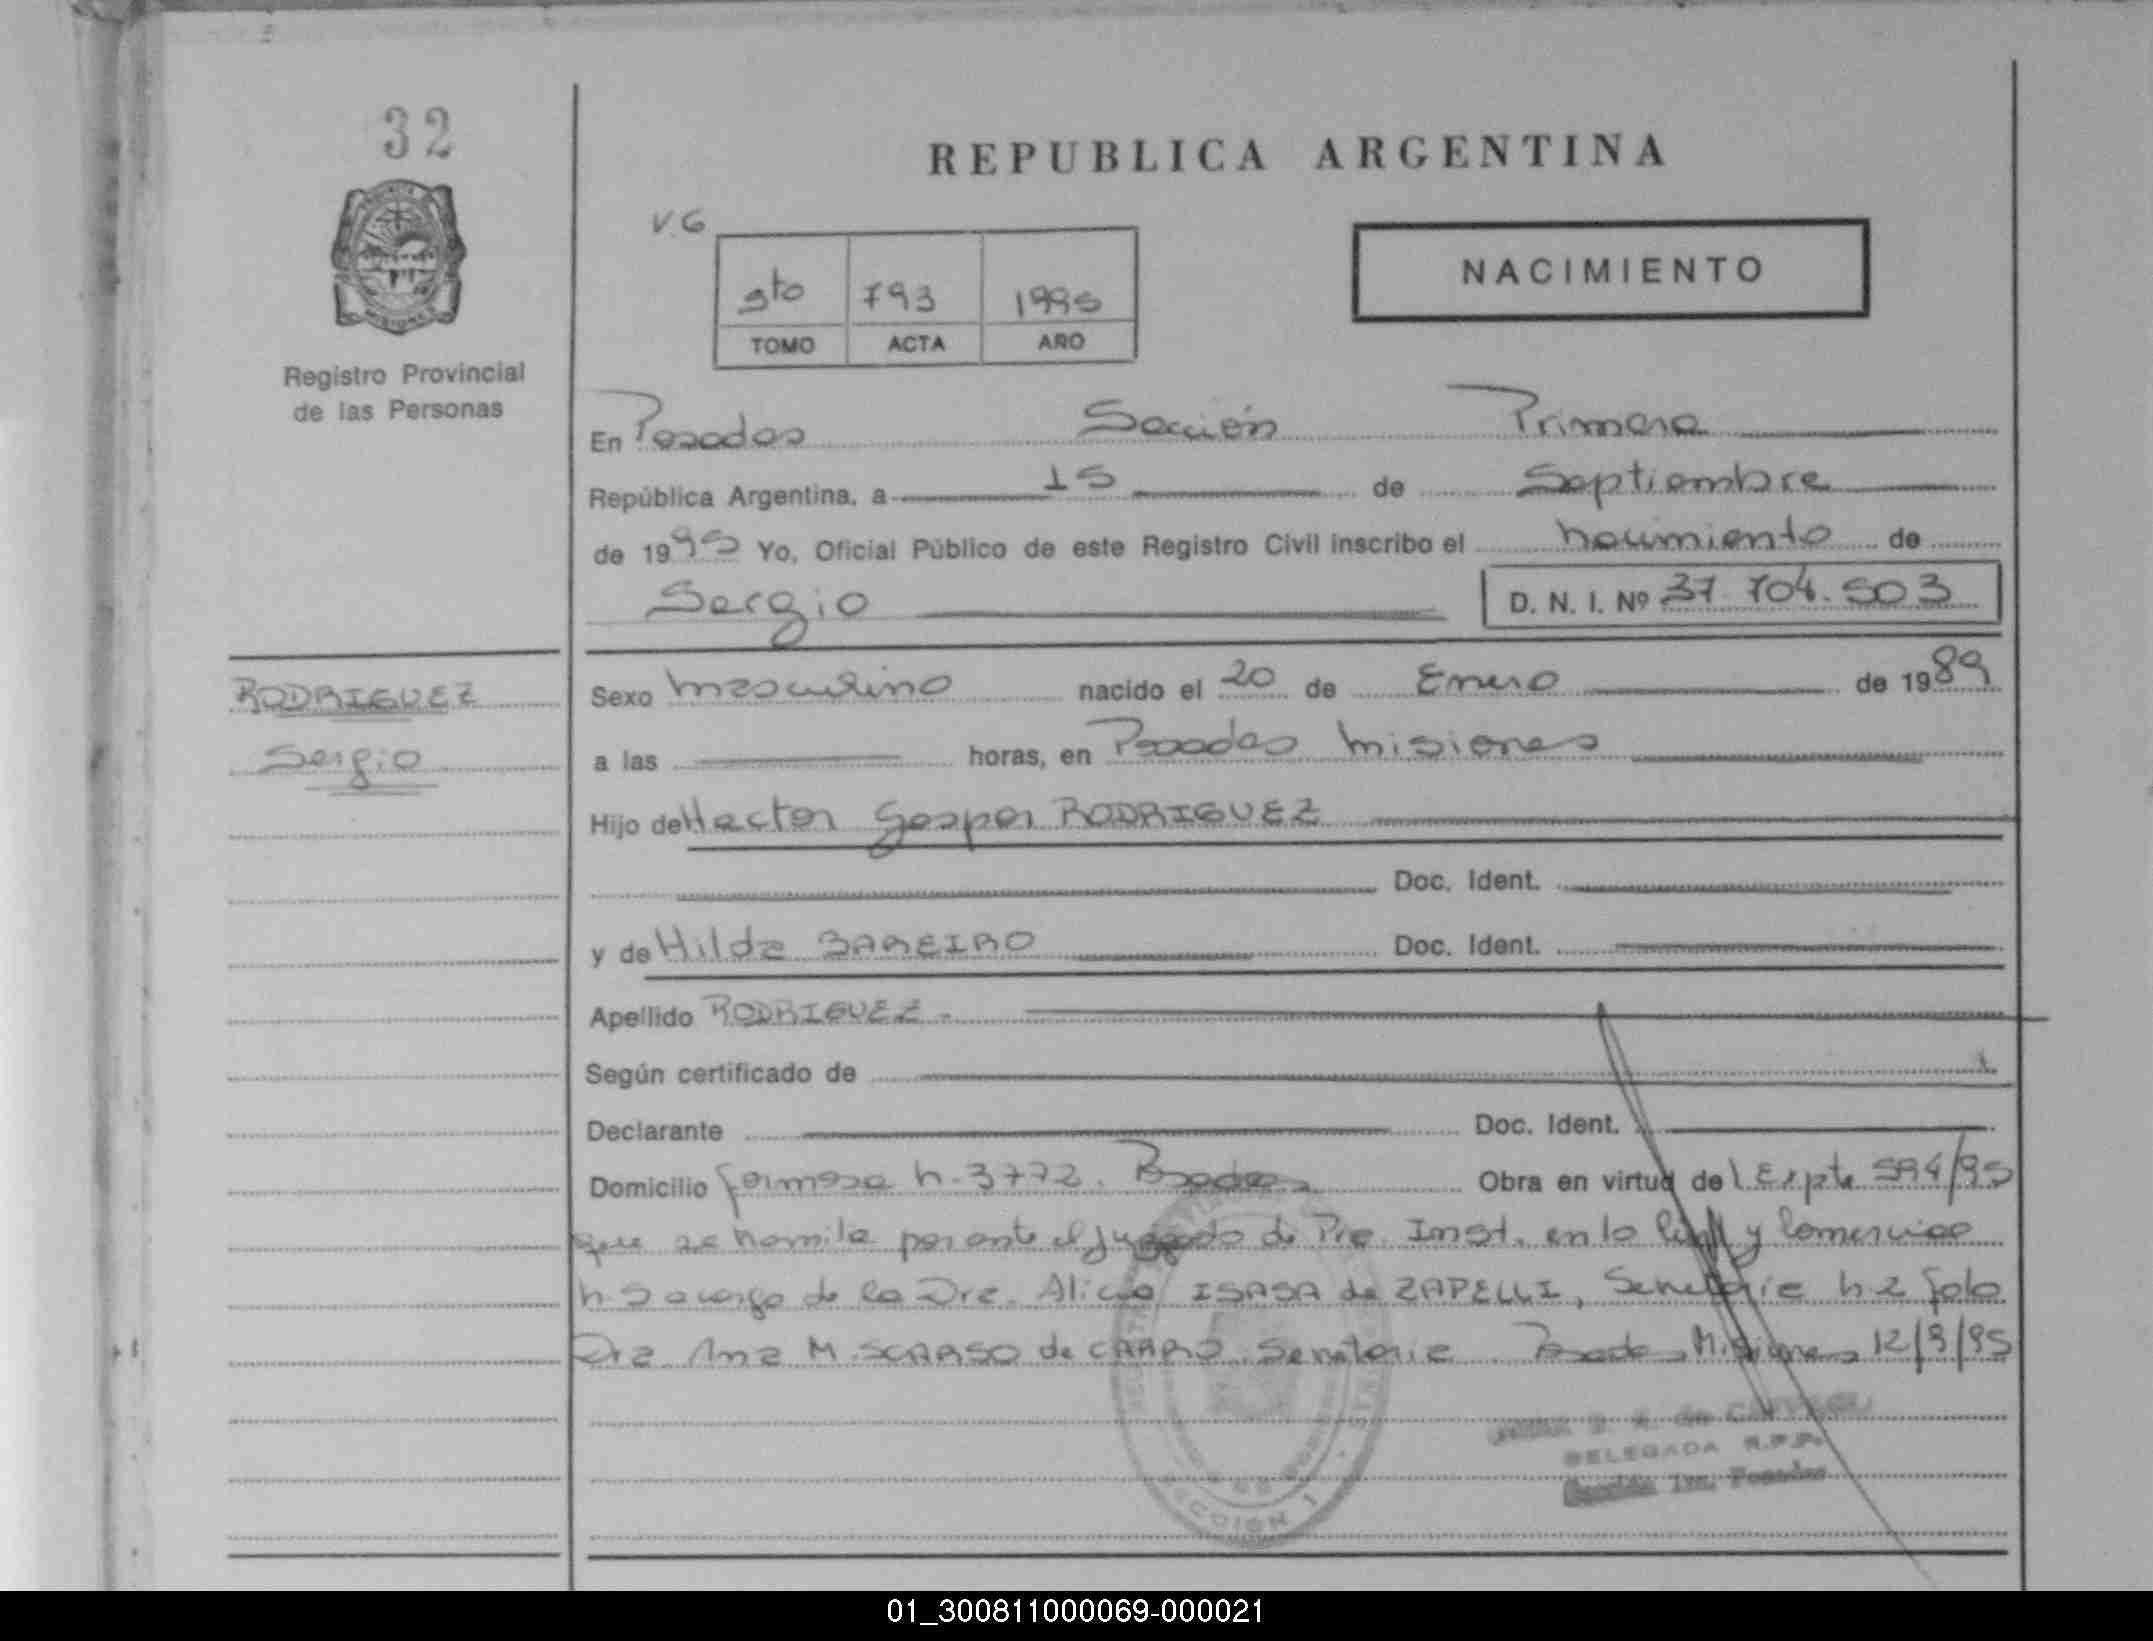 32
REPUBLICA ARGENTINA
V.G
NACIMIENTO
5to 793 1995
TOMO ACTA AÑO
Registro Provincial
de las Personas
En Posadas Sección Primera
República Argentina, a 15 de Septiembre
de 1995 Yo, Oficial Público de este Registro Civil inscribo el nacimiento de
Sergio D. N. I. Nº 37.704.503
RODRIGUEZ
Sergio
Sexo masculino nacido el 20 de Enero de 1989
a las horas, en Posadas Misiones
Hijo de Hector Gaspar RODRIGUEZ
Doc. Ident.
y de Hilda BAREIRO Doc. Ident.
Apellido RODRIGUEZ
Según certificado de
Declarante Doc. Ident.
Domicilio formosa n. 3772. Posadas Obra en virtud del Expte 594/95
que se tramita por ante el Juzgado de Pre. Inst. en lo Civil y Comercial
n 5 a cargo de la Dra. Alicia ISASA de ZAPELLI, Secretaria n 2 
Dra Ana M. SCARSO de Secretaria Posadas, Misiones 12/9/95
DELEGADA R.P.P.
Sección 1ra. Posadas
SECCION 1
01_300811000069-000021